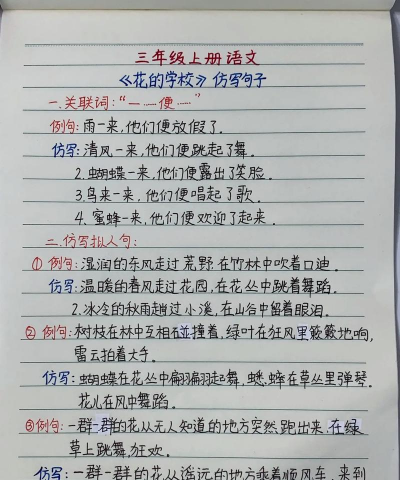 三年级上册语文
《花的学校》仿写句子
一.关联词:“一……便……”
例句:雨一来,他们便放假了.
仿写:清风一来,他们便跳起了舞.
2.蝴蝶一来,他们便露出了笑脸.
3.鸟来一来,他们便唱起了歌.
4.蜜蜂一来,他们便欢迎了起来.
二.仿写拟人句:
①例句:湿润的东风走过荒野,在竹林中吹着口迪.
仿写:温暖的春风走过花园,在花丛中跳着舞蹈.
2.冰冷的秋雨趟过小溪,在山谷中留着眼泪.
②例句:树枝在林中互相碰撞着,绿叶在狂风里簌簌地响,
雷云拍着大手.
仿写:蝴蝶在花丛中翩翩起舞,蟋蟀在草丛里弹琴.
花儿在风中舞蹈.
③例句:一群一群的花从无人知道的地方突然跑出来,在绿
草上跳舞,狂欢.
仿写:一群一群的花从遥远的地方乘着顺风车,来到